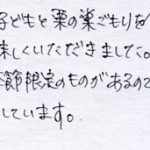 子どもと栗の巣ごもりを
味しくいただきました。
節限定のものがあるので
しています。